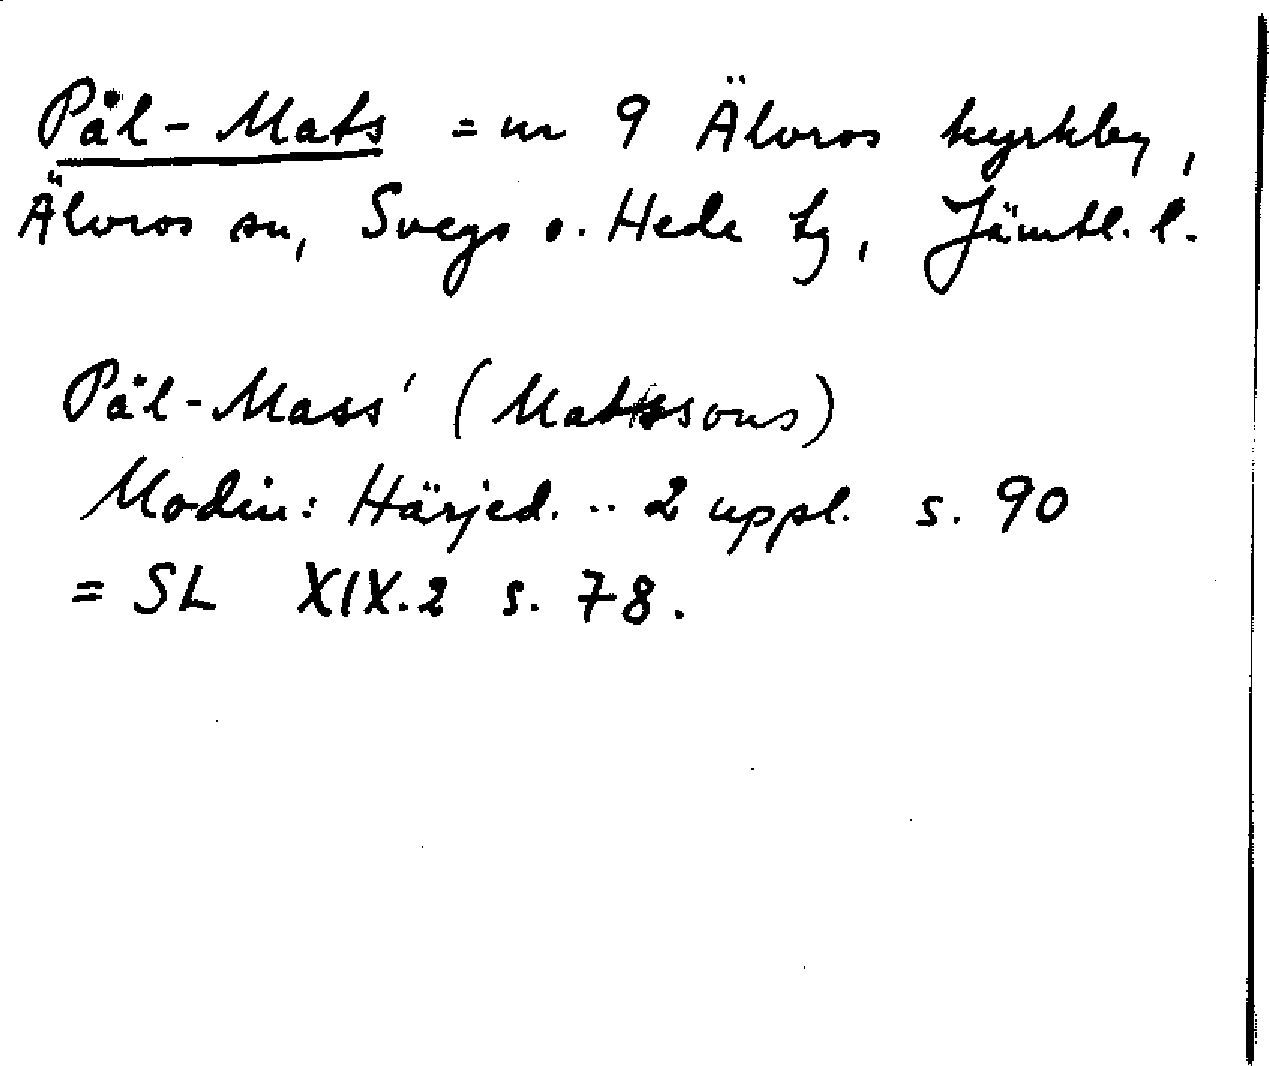 Pål-Mats = nr 9 Älvros kyrkby,
Älvros sn, Svegs o. Hede tg, Jämtl. l.
Pål-Mass' (Matssons)
Modin: Härjed. .. 2 uppl. s. 90
= SL XIX.2 s. 78.